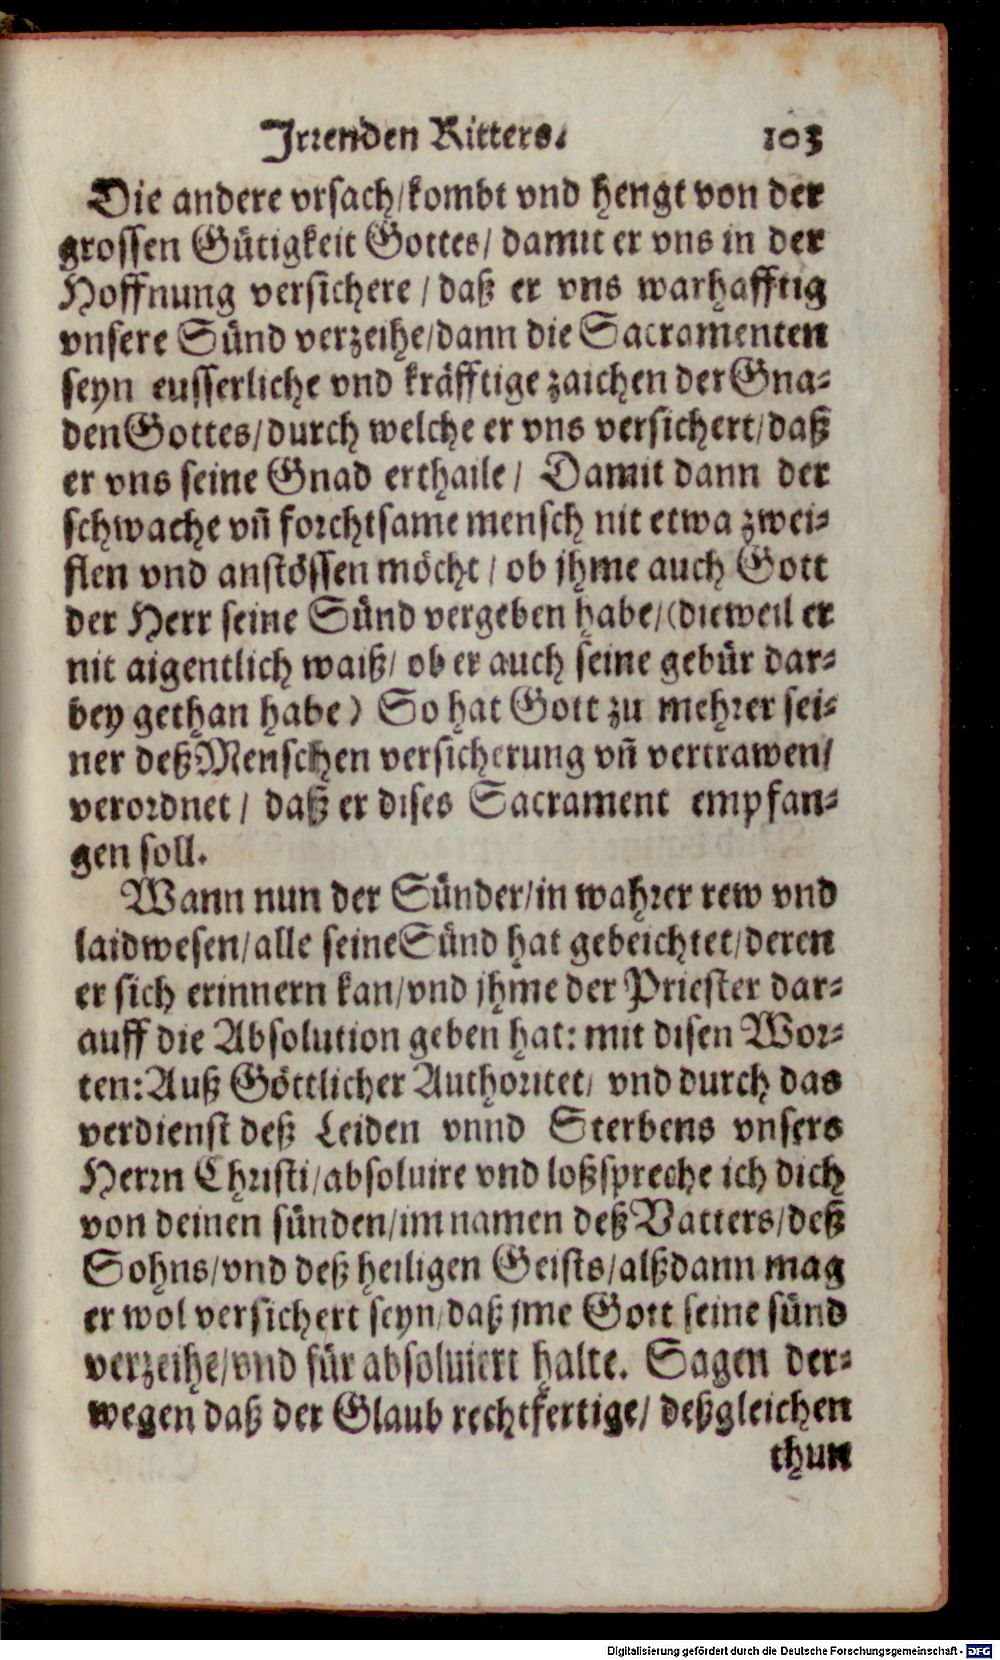 Irrenden Ritters. 103
Die andere vrsach/kombt vnd hengt von der
grossen Gütigkeit Gottes/ damit er vns in der
Hoffnung versichere / daß er vns warhafftig
vnsere Sünd verzeihe/dann die Sacramenten
seyn eusserliche vnd kräfftige zaichen der Gna-
den Gottes/durch welche er vns versichert/daß
er vns seine Gnad erthaile / Damit dann der
schwache vñ forchtsame mensch nit etwa zwei-
flen vnd anstössen möcht / ob jhme auch Gott
der Herr seine Sünd vergeben habe/(dieweil er
nit aigentlich waiß/ ob er auch seine gebür dar-
bey gethan habe) So hat Gott zu mehrer sei-
ner deß Menschen versicherung vñ vertrawen/
verordnet / daß er dises Sacrament empfan-
gen soll.
Wann nun der Sünder/in wahrer rew vnd
laidwesen/alle seine Sünd hat gebeichtet/deren
er sich erinnern kan/vnd jhme der Priester dar-
auff die Absolution geben hat: mit disen Wor-
ten: Auß Göttlicher Authoritet/ vnd durch das
verdienst deß Leiden vnnd Sterbens vnsers
Herrn Christi/absoluire vnd loßspreche ich dich
von deinen sünden/im namen deß Vatters/deß
Sohns/vnd deß heiligen Geists/alßdann mag
er wol versichert seyn/daß jme Gott seine sünd
verzeihe/vnd für absoluiert halte. Sagen der-
wegen daß der Glaub rechtfertige/ deßgleichen
thun
Digitalisierung gefördert durch die Deutsche Forschungsgemeinschaft - DFG